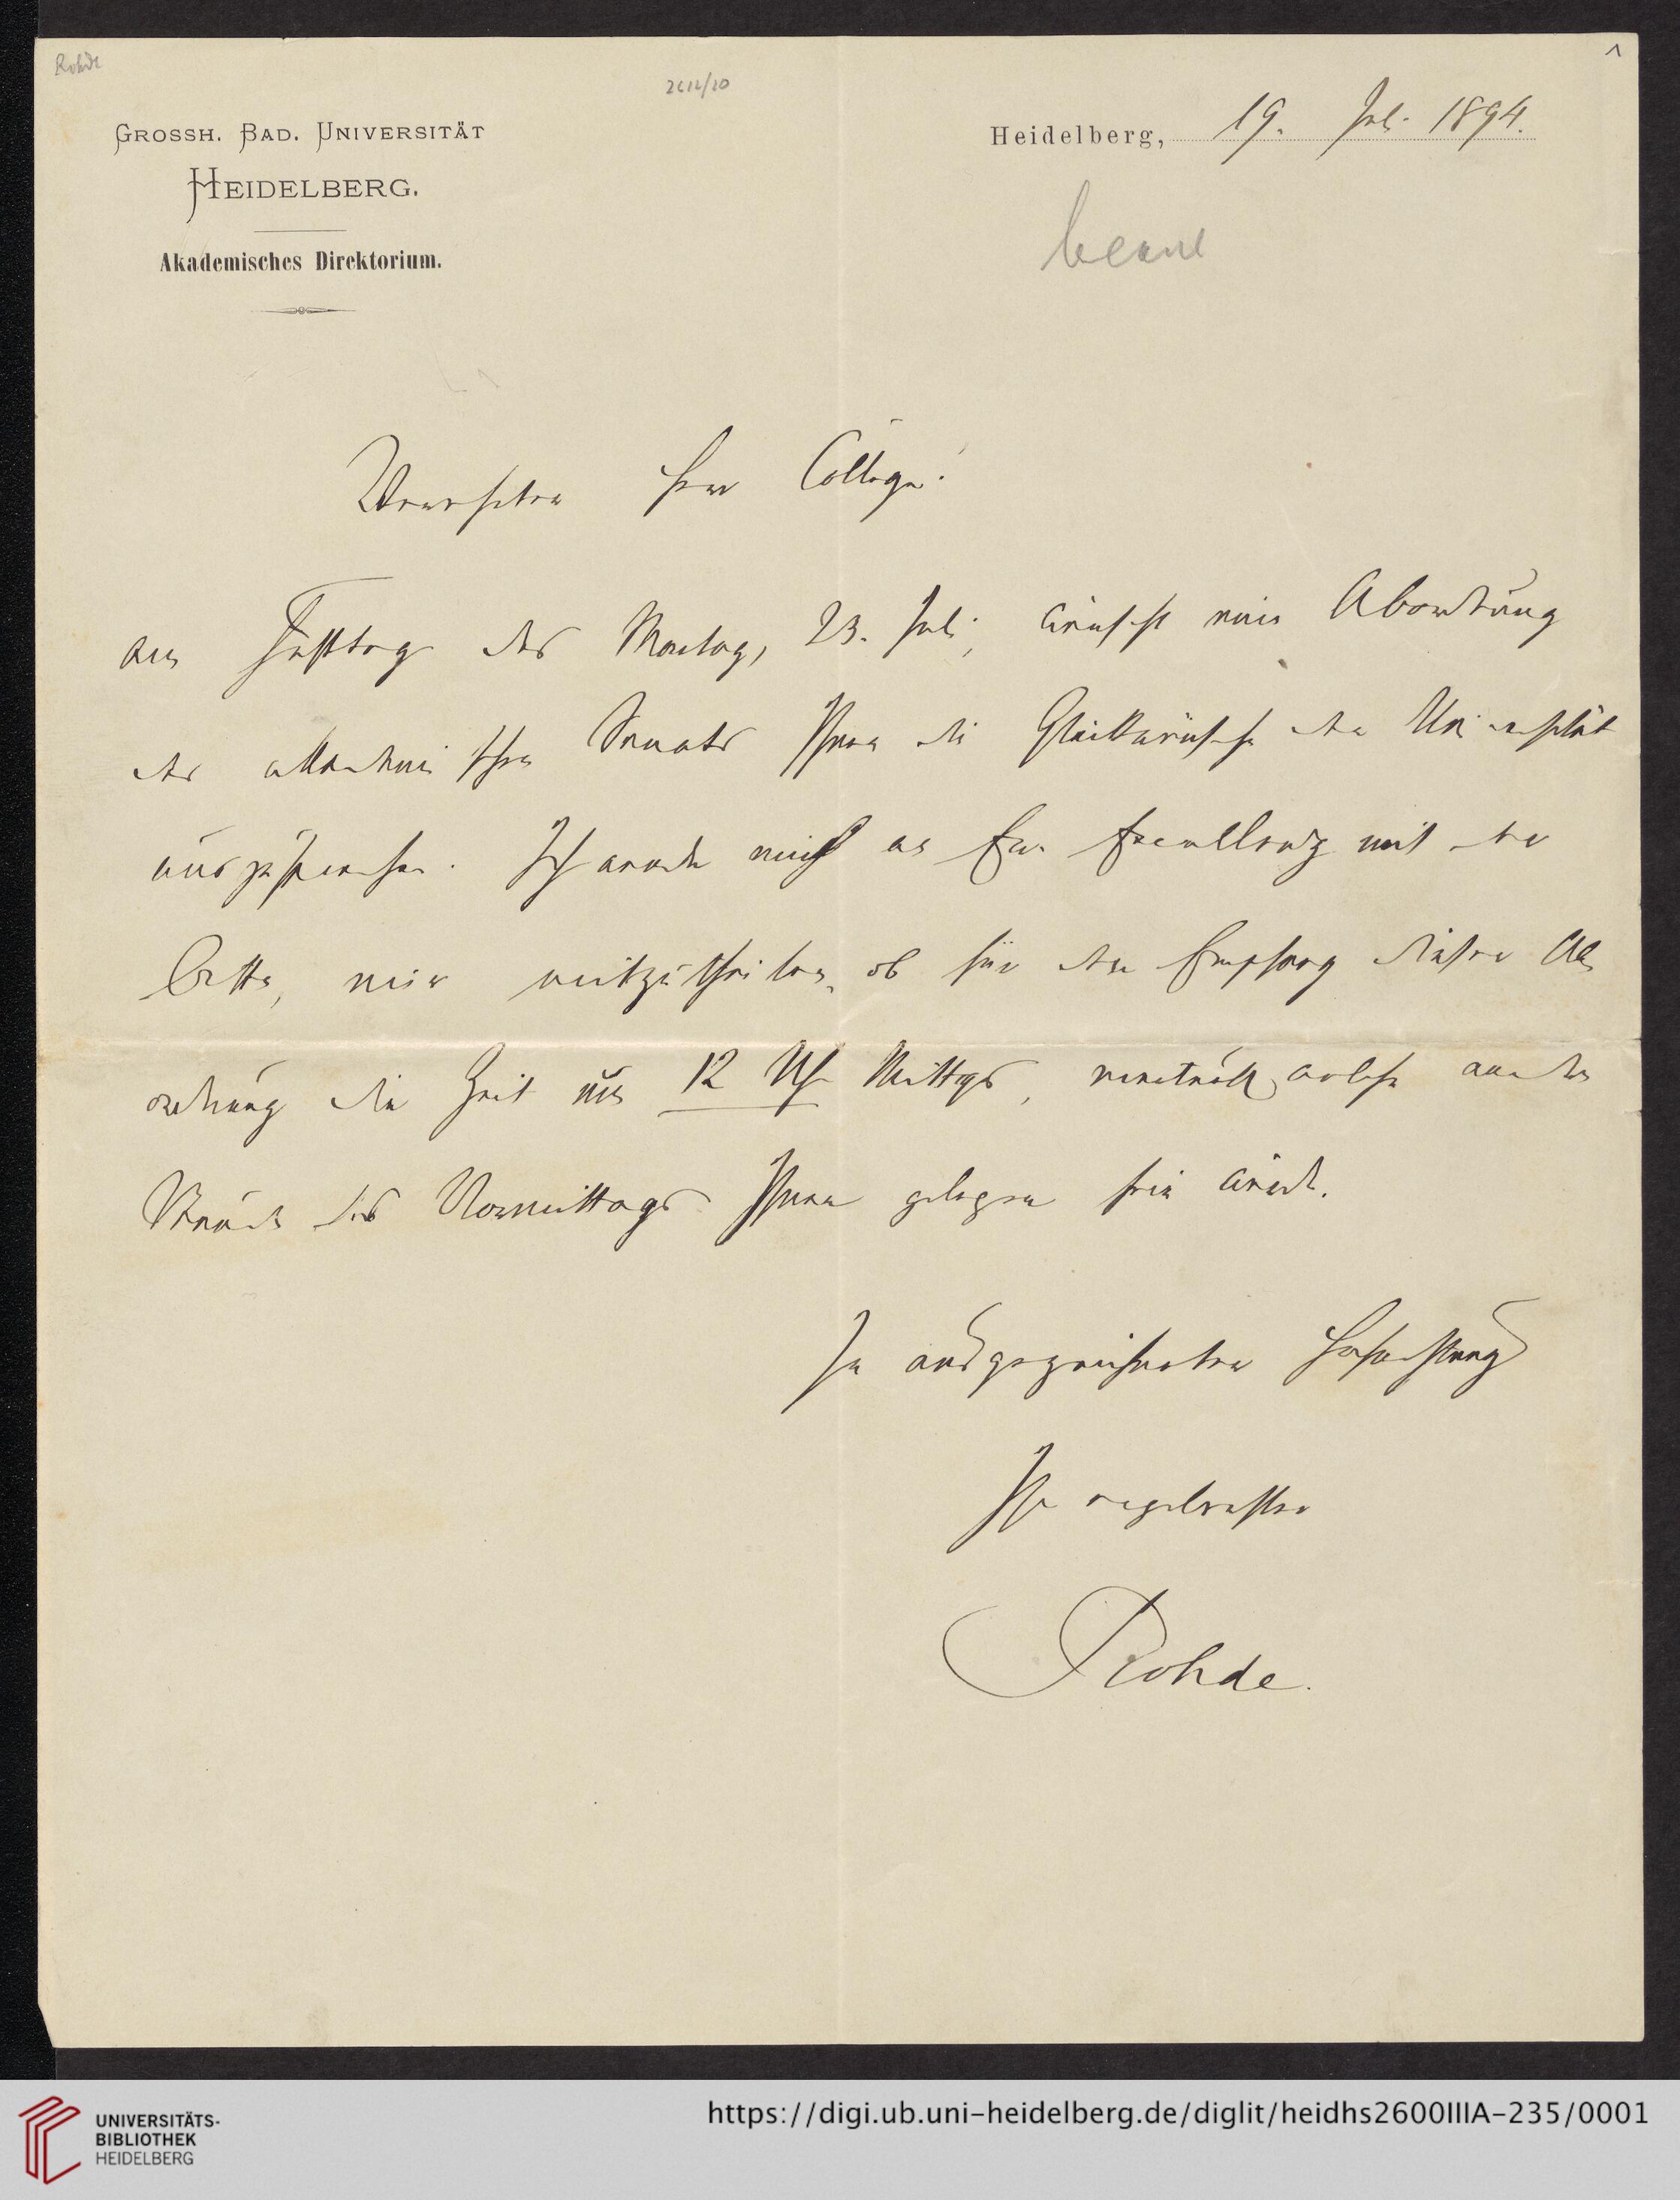 Rohde
GROSSH. BAD. UNIVERSITÄT
HEIDELBERG.
Akademisches Direktorium.
Heidelberg, 19. Juli 1894.
Verehrter Herr College!
Am Festtag des Montag, 23. Juli, wünscht eine Abordnung
des akademischen Senats Ihnen die Glückwünsche der Universität
auszusprechen. Ich wende mich an Ew. Excellenz mit der
Bitte, mir mitzutheilen, ob für den Empfang dieser Ab
ordnung die Zeit um 12 Uhr Mittags, eventuell welche andre
Stunde des Vormittags Ihnen gelegen sein würde.
In ausgezeichneter Hochachtung
Ihr ergebenster
Rohde.
UNIVERSITÄTS-
BIBLIOTHEK
HEIDELBERG
https://digi.ub.uni-heidelberg.de/diglit/heidhs2600IIIA-235/0001